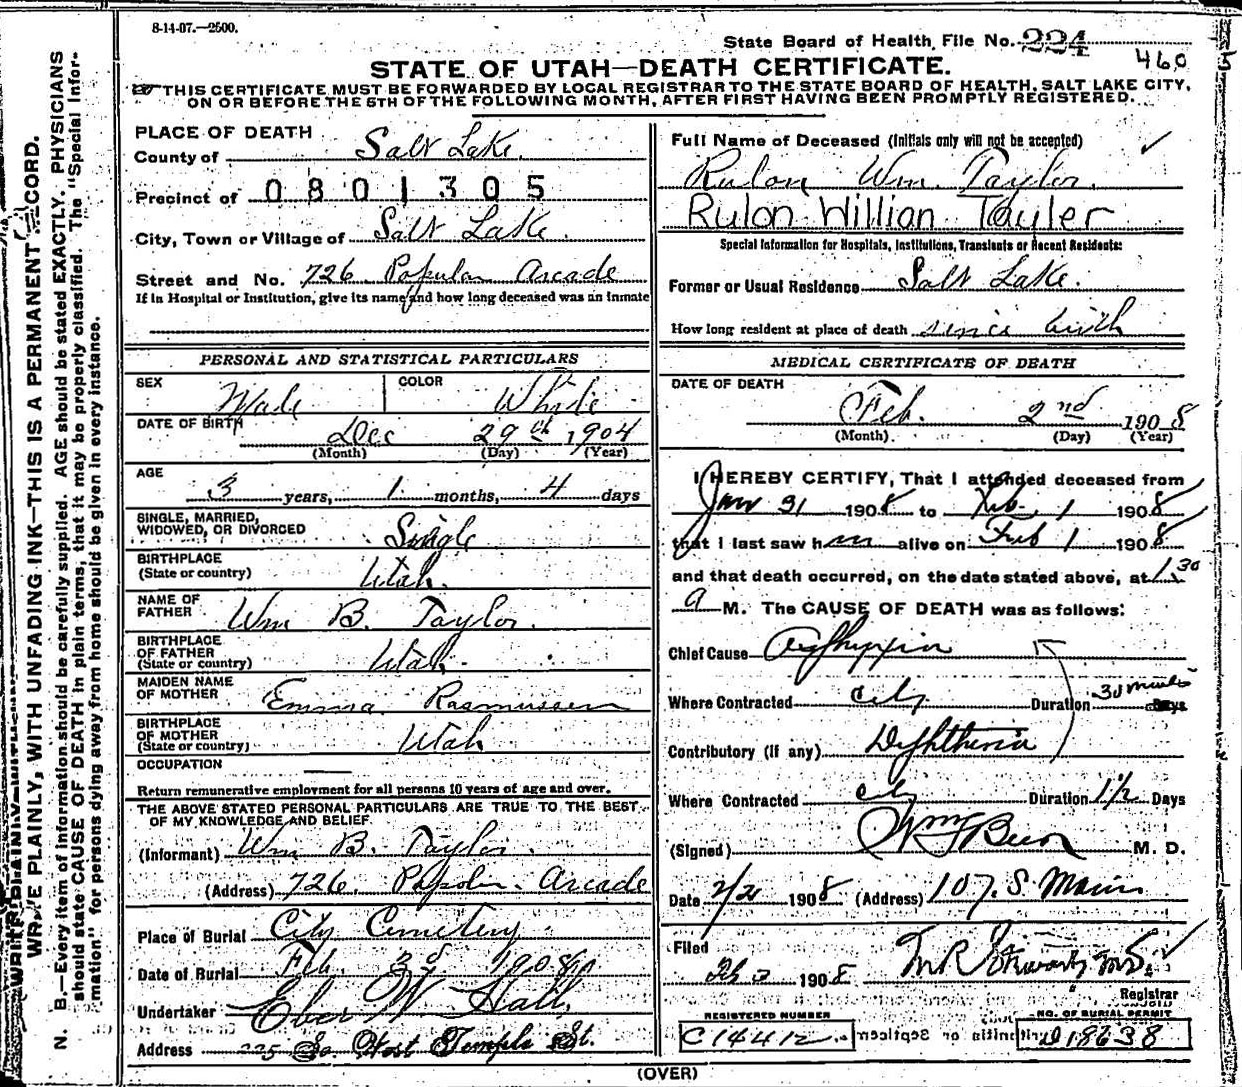 8-14-07.—2500.
State Board of Health File No. 224
460
STATE OF UTAH—DEATH CERTIFICATE.
THIS CERTIFICATE MUST BE FORWARDED BY LOCAL REGISTRAR TO THE STATE BOARD OF HEALTH, SALT LAKE CITY,
ON OR BEFORE THE 5TH OF THE FOLLOWING MONTH, AFTER FIRST HAVING BEEN PROMPTLY REGISTERED.
WRITE PLAINLY, WITH UNFADING INK—THIS IS A PERMANENT RECORD.
N. B.—Every item of information should be carefully supplied. AGE should be stated EXACTLY. PHYSICIANS
should state CAUSE OF DEATH in plain terms, that it may be properly classified. The "Special Infor-
mation" for persons dying away from home should be given in every instance.
PLACE OF DEATH
County of Salt Lake.
Precinct of 0801305
City, Town or Village of Salt Lake.
Street and No. 726 Popular Arcade
If in Hospital or Institution, give its name and how long deceased was an inmate
PERSONAL AND STATISTICAL PARTICULARS
SEX Male COLOR White
DATE OF BIRTH Dec 29th 1904
(Month) (Day) (Year)
AGE
3 years, 1 months, 4 days
SINGLE, MARRIED,
WIDOWED, OR DIVORCED Single
BIRTHPLACE
(State or country) Utah.
NAME OF
FATHER Wm B. Taylor.
BIRTHPLACE
OF FATHER
(State or country) Utah.
MAIDEN NAME
OF MOTHER Emma Rasmussen
BIRTHPLACE
OF MOTHER
(State or country) Utah
OCCUPATION
Return remunerative employment for all persons 10 years of age and over.
THE ABOVE STATED PERSONAL PARTICULARS ARE TRUE TO THE BEST
OF MY KNOWLEDGE AND BELIEF
(Informant) Wm B. Taylor.
(Address) 726. Arcade
Place of Burial City Cemetery
Date of Burial Feb. 3d 1908
Undertaker Eber W Hall,
Address 225 So West Temple St.
Full Name of Deceased (Initials only will not be accepted)
Rulon Wm. Taylor.
Rulon Willian Tayler
Special Information for Hospitals, Institutions, Transients or Recent Residents:
Former or Usual Residence Salt Lake.
How long resident at place of death since birth
MEDICAL CERTIFICATE OF DEATH
DATE OF DEATH
Feb. 2nd 1908
(Month) (Day) (Year)
I HEREBY CERTIFY, That I attended deceased from
Jan 31 1908 to Feb. 1 1908
that I last saw him alive on Feb 1 1908
and that death occurred, on the date stated above, at 1 30
a M. The CAUSE OF DEATH was as follows:
Chief Cause Asphyxia
Where Contracted city Duration 30 minutes Days
Contributory (if any) Diphtheria
Where Contracted city Duration 1 1/2 Days
(Signed) M. D.
Date 2/2 1908 (Address) 107. S. Main
Filed
Feb 3 1908
Registrar
REGISTERED NUMBER
C14412
NO. OF BURIAL PERMIT
D18638
(OVER)